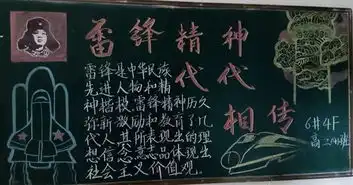 雷锋精神
代代相传
雷锋是中华民族
先进人物和精
神楷模，雷锋精神历久
弥新，激励和教育了几
代人，其所表现出的理
想信念意志品体现出
社会主义价值观。
6#4F